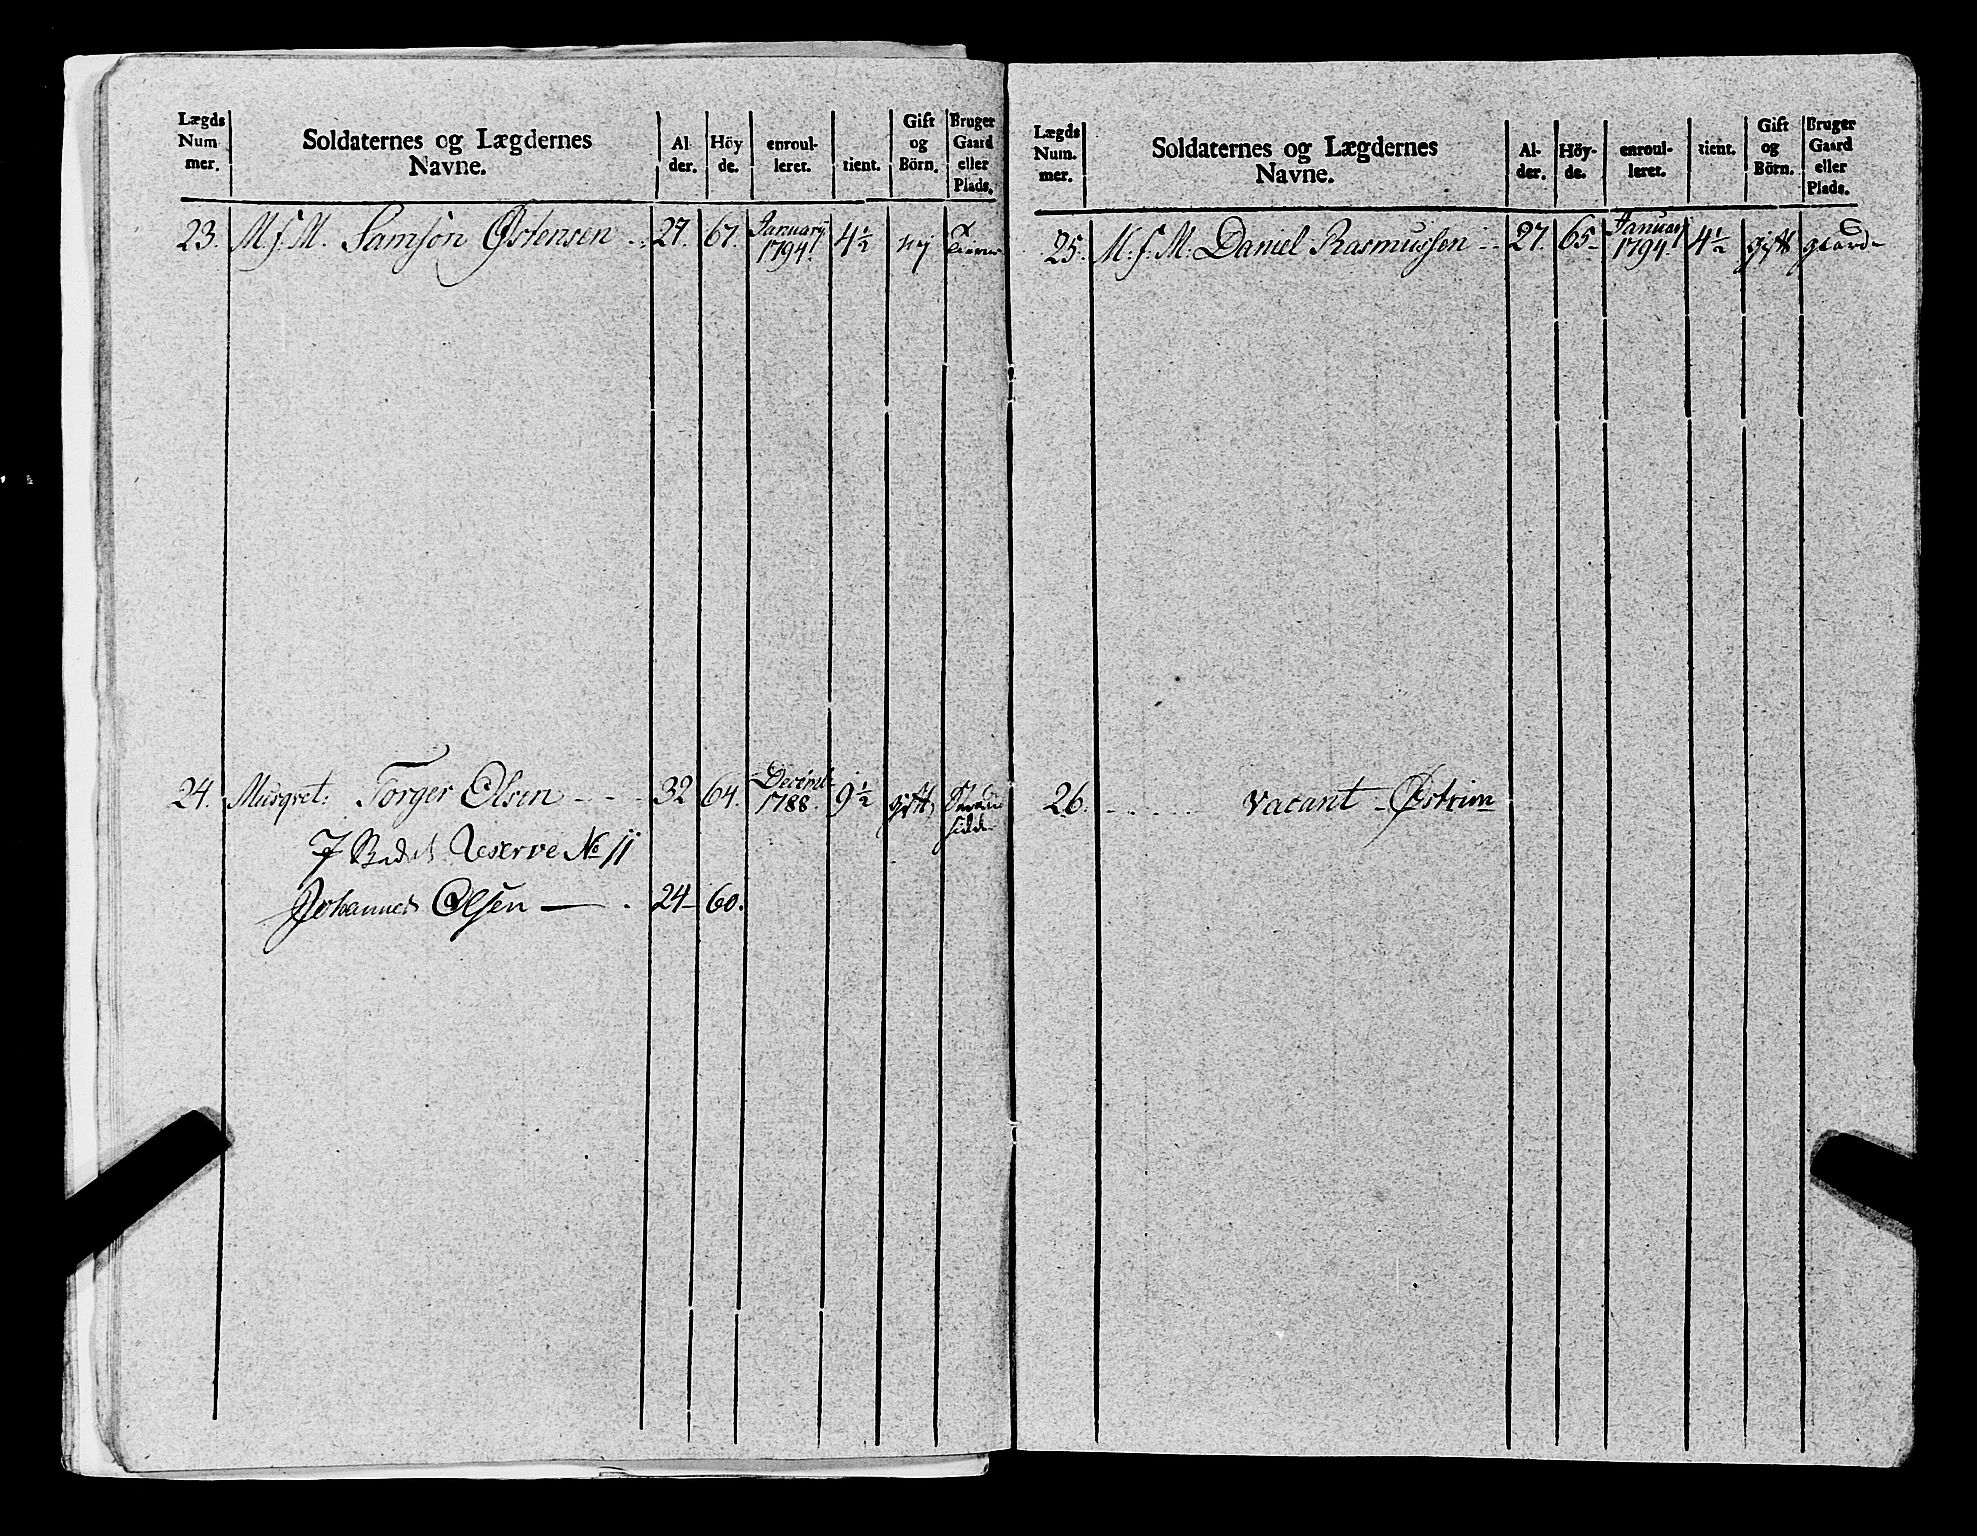 Lægds Num mer. Soldaternes og Lægdernes Navne. Al der. Höy de. enroul- leret. tient. Gift og Börn. Bruger Gaard eller Plads.
23. M. f. M. Samson Østensen 27. 67. January 1794. 4½ nej
24. Musqvet: Torger Olsen 32 64. Decembr 1788. 9½ gift
Reserve No 11
Johannes Olsen 24 60.
Lægds Num. mer. Soldaternes og Lægdernes Navne. Al- der. Höy- de. enroul- leret. tient. Gift og Börn. Bruger Gaard eller Plads.
25. M. f. M. Daniel Rasmussen 27. 65 Januar 1794. 4½ gift gaard
26. vacant